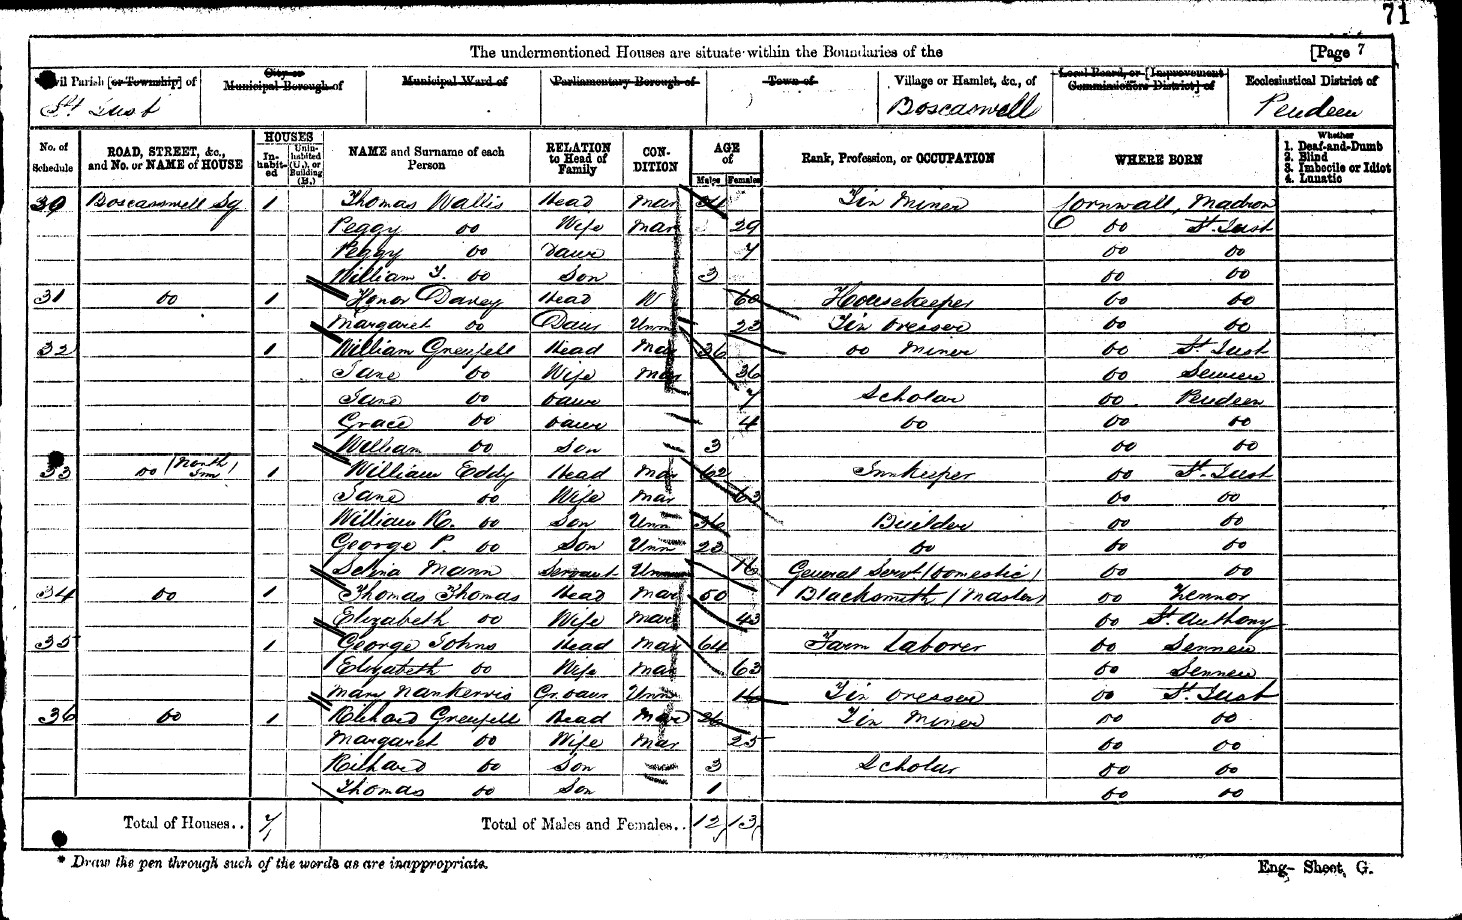 71
The undermentioned Houses are situate within the Boundaries of the [Page 7
Civil Parish [or Township] of City or Municipal Borough of Municipal Ward of Parliamentary Borough of Town of Village or Hamlet, &c., of Local Board, or [Improvement Commissioners District] of Ecclesiastical District of
St. Just Boscaswell Pendeen
No. of Schedule ROAD, STREET, &c., and No. or NAME of HOUSE HOUSES Inhabited Uninhabited (U.), or Building (B.) NAME and Surname of each Person RELATION to Head of Family CONDITION AGE of Males Females Rank, Profession, or OCCUPATION WHERE BORN Whether 1. Deaf-and-Dumb 2. Blind 3. Imbecile or Idiot 4. Lunatic
30 Boscasswell Sq 1 Thomas Wallis Head Mar Tin Miner Cornwall, Madron
Peggy Do Wife Mar 29 Do St. Just
Peggy Do Daur 7 Do Do
William T. Do Son 3 Do Do
31 Do 1 Honor Davey Head W 60 Housekeeper Do Do
Margaret Do Daur Unm 22 Tin Dresser Do Do
32 1 William Grenfell Head Mar 36 Do Miner Do St. Just
Jane Do Wife Mar 36 Do Sennen
Jane Do Daur 7 Scholar Do Pendeen
Grace Do Daur 4 Do Do Do
William Do Son 3 Do Do
33 Do (North Inn) 1 William Eddy Head Mar 62 Innkeeper Do St. Just
Jane Do Wife Mar 62 Do Do
William R. Do Son Unm 36 Builder Do Do
George P. Do Son Unm 23 Do Do Do
Selina Mann Servant Unm 16 General Servt. (Domestic) Do Do
34 Do 1 Thomas Thomas Head Mar 50 Blacksmith (Master) Do Zennor
Elizabeth Do Wife Mar 43 Do St. Anthony
35 1 George Johns Head Mar 64 Farm Laborer Do Sennen
Elizabeth Do Wife Mar 63 Do Sennen
Mary Nankervis Gr. Daur Unm 16 Tin Dresser Do St. Just
36 Do 1 Richard Grenfell Head Mar 26 Tin Miner Do Do
Margaret Do Wife Mar 25 Do Do
Richard Do Son 3 Scholar Do Do
Thomas Do Son 1 Do Do
Total of Houses.. 7 Total of Males and Females.. 12 13
* Draw the pen through such of the words as are inappropriate. Eng- Sheet, G.